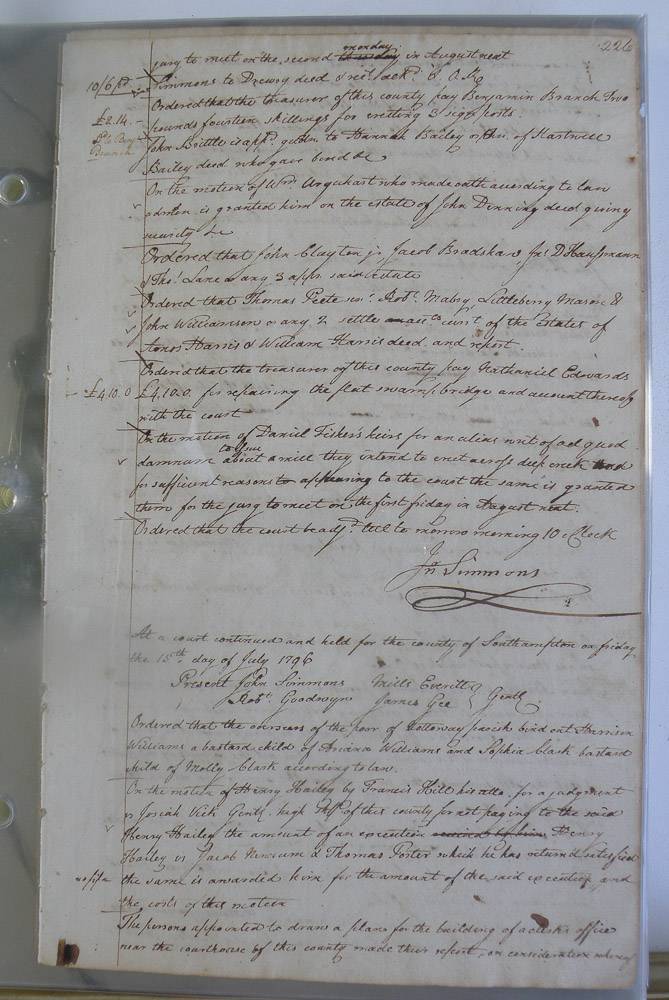 226
monday
jury to meet on the second thursday in August next
10/6 pd
Simmons to Drewry deed & rect. ackd. & O.R.
Ordered that the treasurer of this county pay Benjamin Branch Two
£2.14.
pounds fourteen shillings for erecting 3 sign posts.
John Brittle is appd. guden. to Hannah Bailey orphn. of Hartwell
Branch
Bailey decd who gave bond &c
On the motion of Wm. Urquhart who made oath according to law
admton. is granted him on the estate of John Denning decd giving
security &c
Ordered that John Clayton jr. Jacob Bradshaw Jno. D Haussmann
& Thos. Lane or any 3 appr. said Estate
Ordered that Thomas Peete senr. Robt. Mabry Littleberry Mason &
John Williamson or any 2 settle accts. curt. of the Estates of
Amos Harris & William Harris decd and report.
Ordered that the treasurer of this county pay Nathaniel Edwards
£4.10.0
£4.10.0. for repairing the flat swamp bridge and account thereof
with the court
On the motion of Daniel Fisher's heirs for an alias writ of ad quod
to issue
damnum about a mill they intend to erect across deep creek
for sufficient reasons appearing to the court the same is granted
them for the jury to meet on the first friday in August next.
Ordered that the court be adjd. till to morrow morning 10 oClock
Jn Simmons
At a court continued and held for the county of Southampton on friday
the 15th day of July 1796
Present John Simmons Mills Everitt
Robt. Goodwyn James Gee Gentl.
Ordered that the overseers of the poor of Nottoway parish bind out Harrison
Williams a bastard child of Ariana Williams and Sophia Clark bastard
child of Molly Clark according to law.
On the motion of Henry Hailey by Francis Hill his atto. for a judgment
vs Josiah Vick Gentl. high Shff. of this county for not paying to the said
Henry Hailey the amount of an execution Henry
Hailey vs Jacob Newsum & Thomas Porter which he has returned satisfied
the same is awarded him for the amount of the said execution and
the costs of this motion
The persons appointed to draw a plan for the building of a clerks office
near the courthouse of this county made their report, on consideration whereof